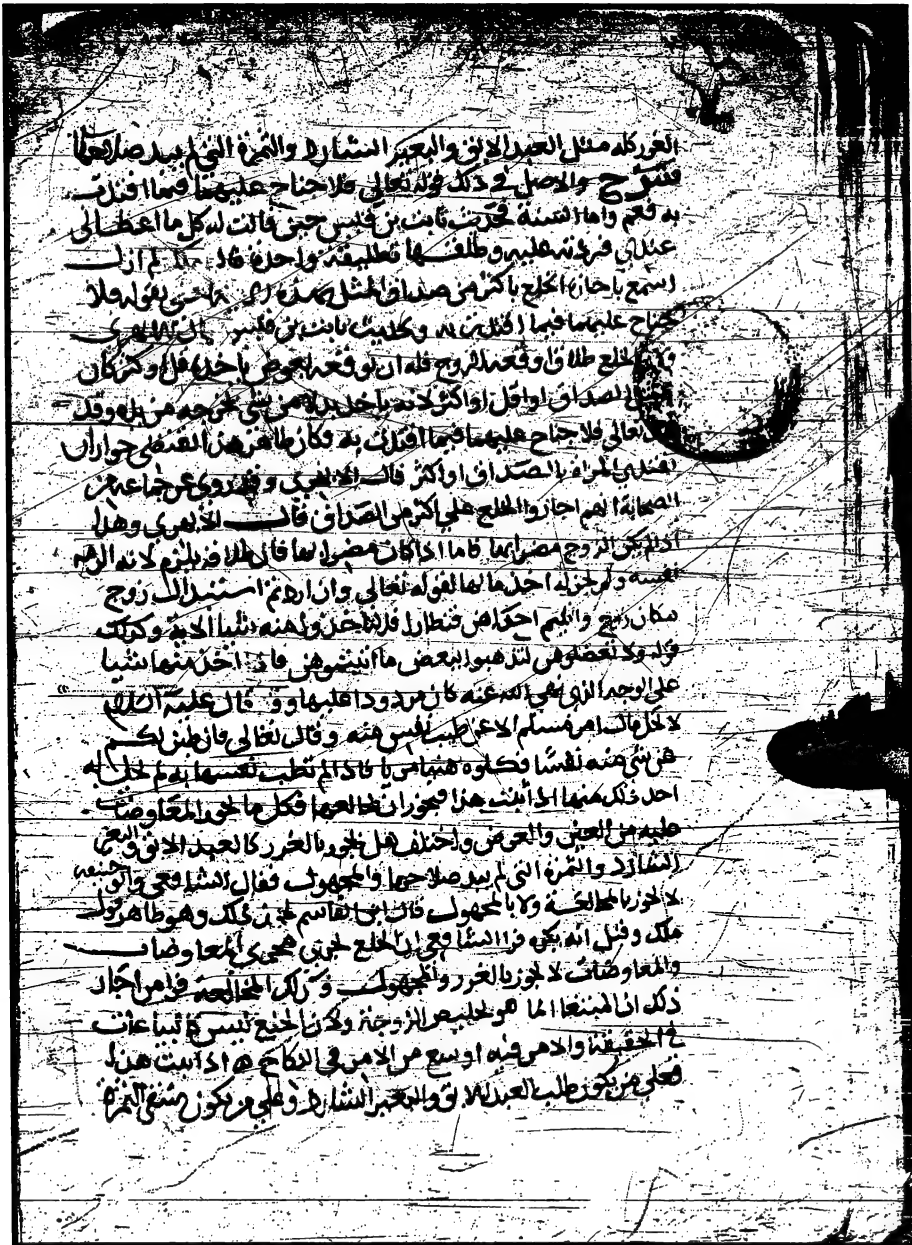 الغرر كله مثل العبد الابق والبعير الشارد والثمرة التي لم يبد صلاحها
فشرح والاصل في ذلك قوله تعالى فلا جناح عليهما فيما افتدت
به فعم واما السنة فحديث ثابت بن قيس حين قالت له كل ما اعطاني
عندي فرد ته عليه وطلقها تطليقة واحدة قال لم ازل
اسمع باجازة الخلع باكثر من صداق المثل بهذه بقوله فلا
جناح عليهما فيما افتدت به وحديث ثابت بن قيس قال الابهري
الخلع طلاق اوقعه الزوج فله ان يوقعه بعوض ياخذه قل او كثر كان
الصداق او اقل او اكثر لانه ياخذ بدله من شي يخرجه من يده وقد
قال تعالى فلا جناح عليهما فيما افتدت به فكان ظاهر هذا يقتضي جواز ان
تفتدي المراة بالصداق او اكثر قال الابهري وقد روي عن جماعة من
الصحابة انهم اجازوا الخلع على اكثر من الصداق قال الابهري وهذا
اذا لم يكن الزوج مضرا بها فاما اذا كان مضرا بها فان طلاقه يلزم لانه الزمه
نفسه ولم يجز له اخذ مالها لقوله تعالى وان اردتم استبدال زوج
مكان زوج واتيتم احداهن قنطارا فلا تاخذوا منه شيا الاية وكذلك
قوله ولا تعضلوهن لتذهبوا ببعض ما اتيتموهن فاذا اخذ منها شيا
على الوجه الذي نهى الله عنه كان مردودا عليها وقد قال عليه السلام
لا يحل مال امر مسلم الا عن طيب نفس منه وقال تعالى فان طبن لكم
عن شي منه نفسا فكلوه هنيا مريا فاذا لم تطب نفسها به لم يحل له
اخذ ذلك منها اذا ثبت هذا فيجوز ان يخالعها بكل ما المعاوضات
عليه من العين والعرض واختلف هل يجوز بالغرر كالعبد الابق والبعير
الشارد والثمرة التي لم يبد صلاحها والمجهول فقال الشافعي وابو حنيفة
لا يجوز بالمخالعة ولا بالمجهول قال ابن القاسم يجوز ذلك وهو ظاهر قول
ملك وقيل انه يكره فراى الشافعي ان الخلع يجري مجرى المعاوضات
والمعاوضات لا تجوز بالغرر والمجهول وكذلك المخالعة فراى من اجاز
ذلك ان المبتغا انما هو تخليص الزوجة ولان الخلع ليس كالبياعات
في الحقيقة والامر فيه اوسع من الامر في النكاح اذا ثبت هذا
فعلى من يكون طلب العبد الابق والبعير الشارد وعلى من يكون سقي الثمرة